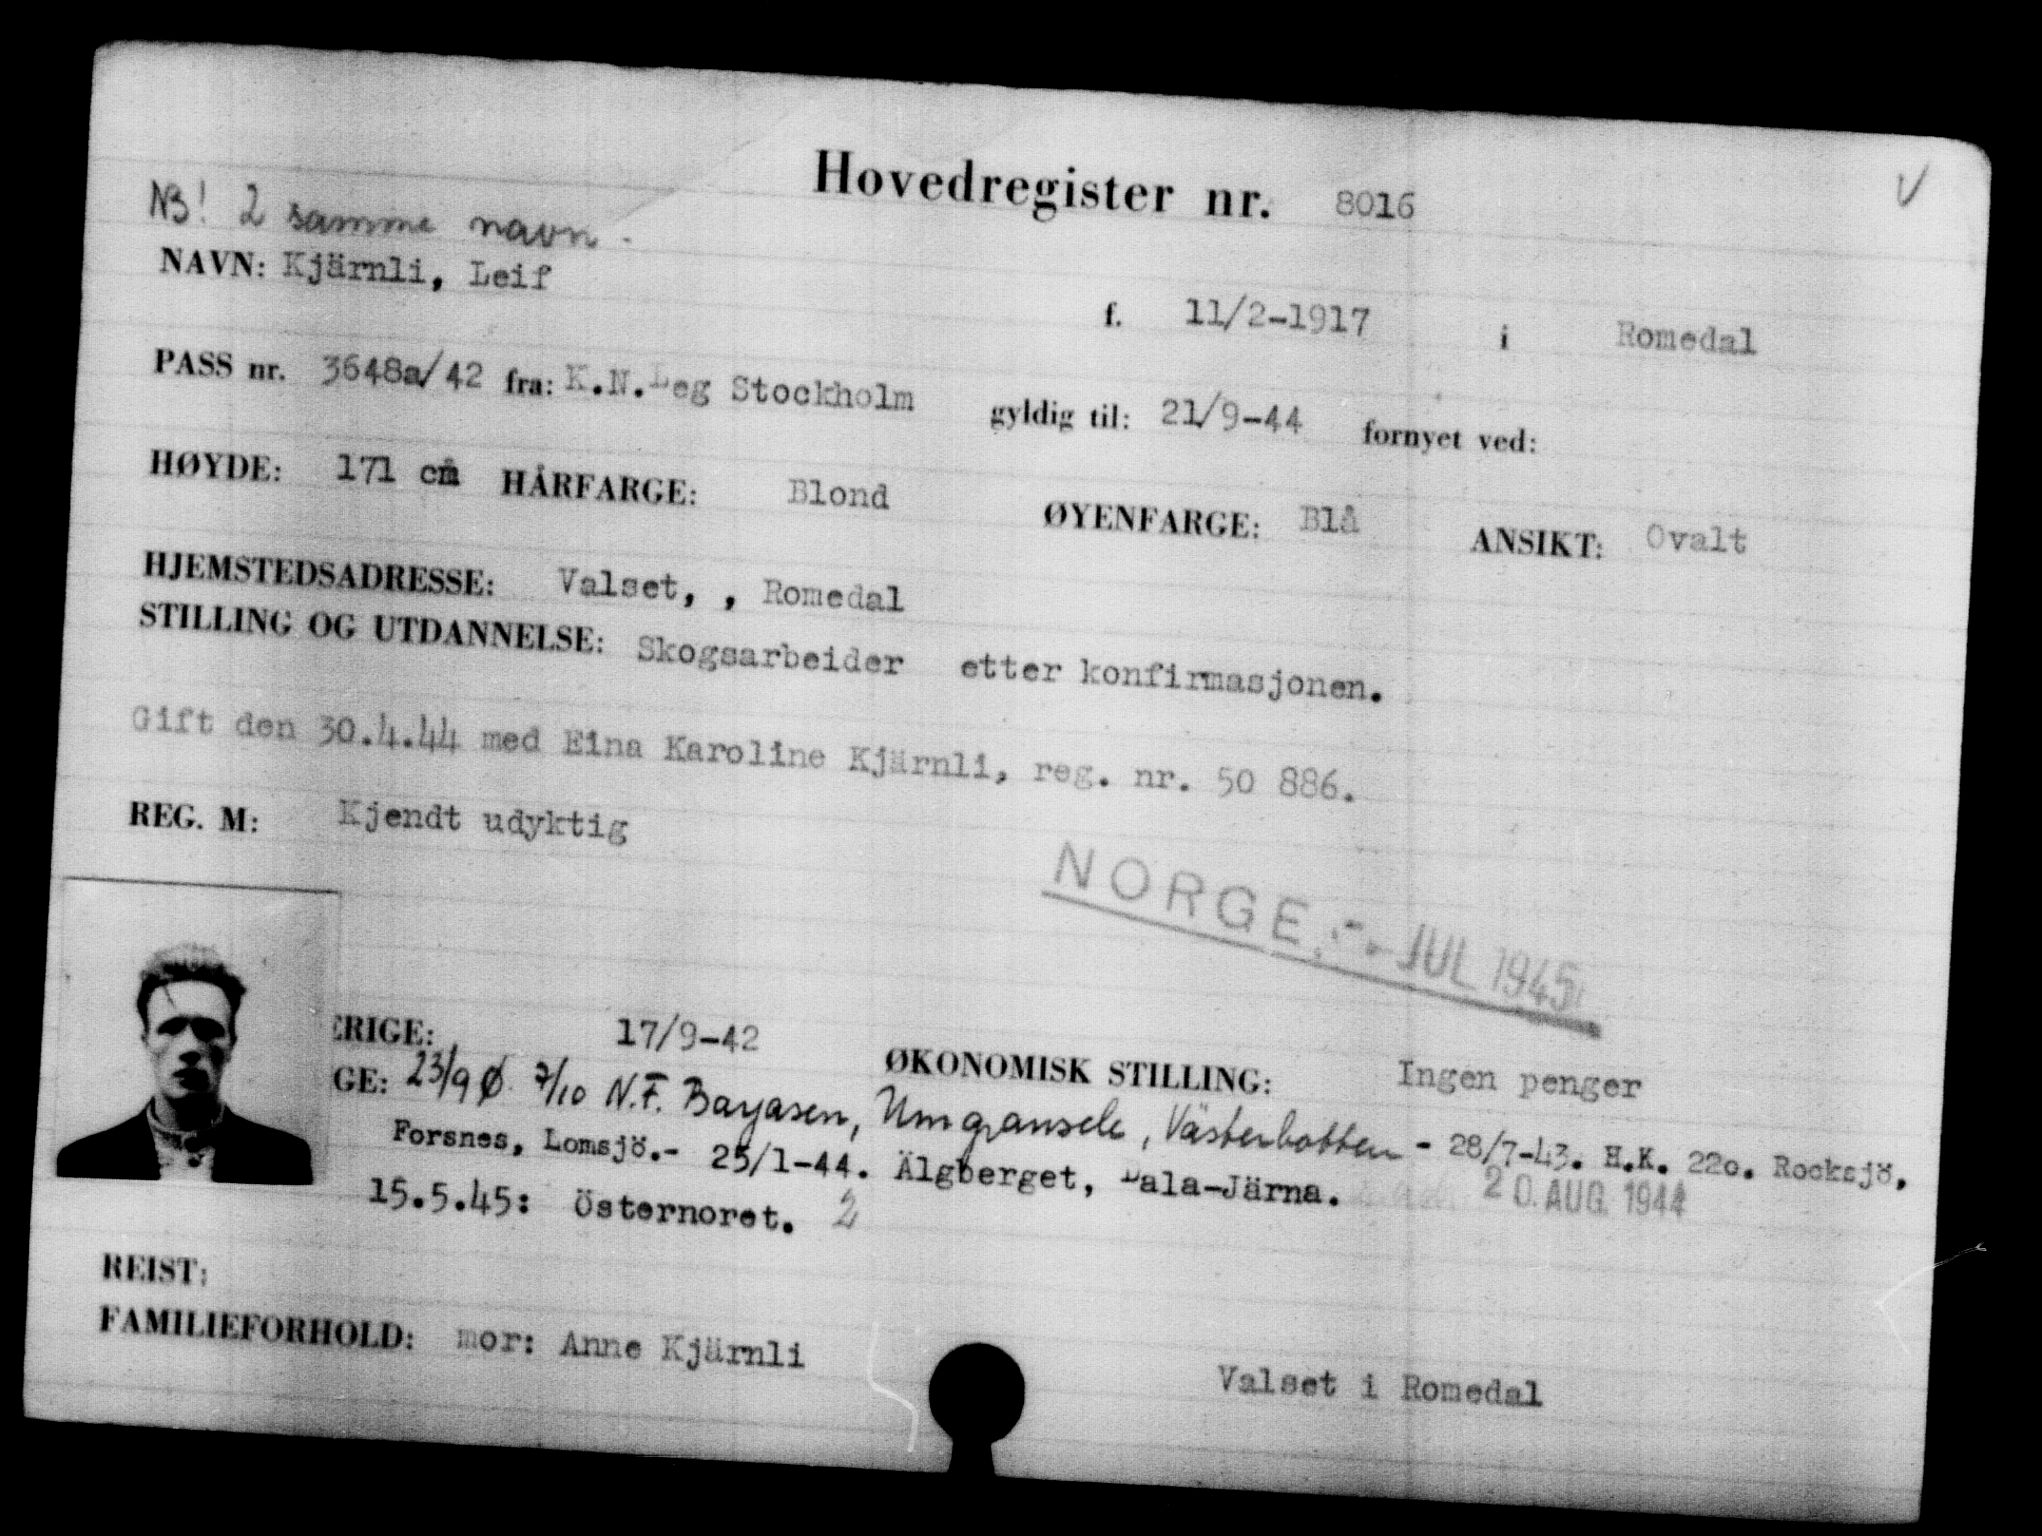 Hovedregister nr. 8016 V
NB! 2 samme navn.
NAVN: Kjärnli, Leif f. 11/2-1917 i Romedal
PASS nr. 3648a/42 fra: K.N.Leg Stockholm gyldig til: 21/9-44 fornyet ved:
HØYDE: 171 cm HÅRFARGE: Blond ØYENFARGE: Blå ANSIKT: Ovalt
HJEMSTEDSADRESSE: Valset, , Romedal
STILLING OG UTDANNELSE: Skogsarbeider etter konfirmasjonen.
Gift den 30.4.44 med Eina Karoline Kjärnli, reg. nr. 50 886.
REG. M: Kjendt udyktig
NORGE. - JUL 1945
ERIGE: 17/9-42 ØKONOMISK STILLING: Ingen penger
GE: 23/9 Ø. 7/10 N.F. Bayasen, Umgransele, Västerbotten - 28/7-43. H.K. 220. Rocksjö,
Forsnes, Lomsjö.- 25/1-44. Älgberget, Dala-Järna. 20. AUG. 1944
15.5.45: Östernoret. 2
REIST:
FAMILIEFORHOLD: mor: Anne Kjärnli Valset i Romedal